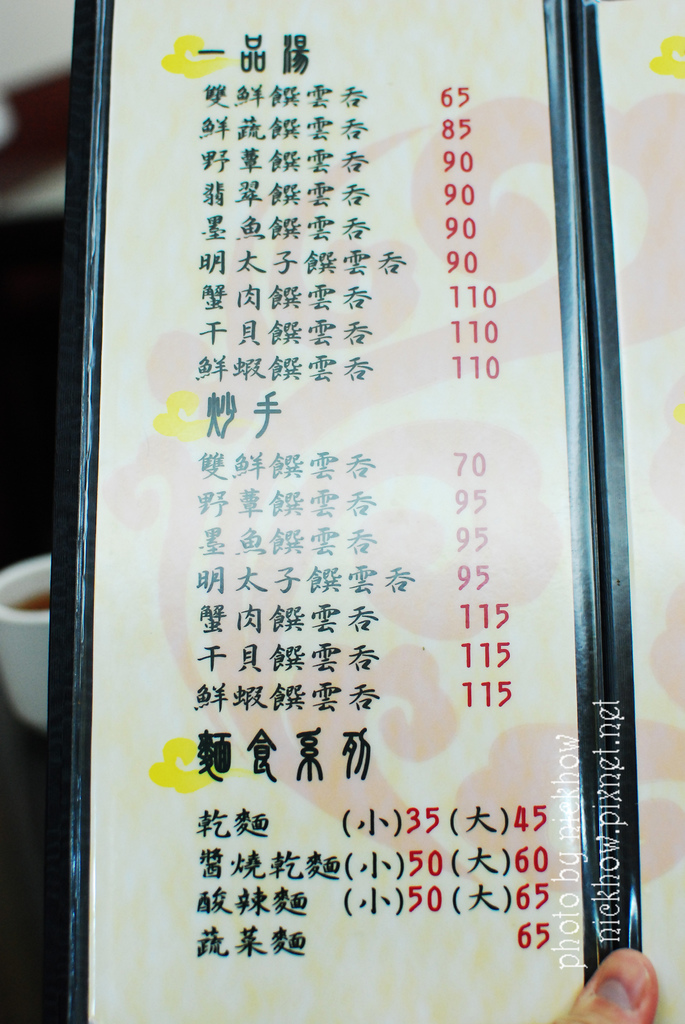 一品湯
雙鮮饌雲吞 65
鮮蔬饌雲吞 85
野蕈饌雲吞 90
翡翠饌雲吞 90
墨魚饌雲吞 90
明太子饌雲吞 90
蟹肉饌雲吞 110
干貝饌雲吞 110
鮮蝦饌雲吞 110
炒手
雙鮮饌雲吞 70
野蕈饌雲吞 95
墨魚饌雲吞 95
明太子饌雲吞 95
蟹肉饌雲吞 115
干貝饌雲吞 115
鮮蝦饌雲吞 115
麵食系列
乾麵 (小)35(大)45
醬燒乾麵(小)50(大)60
酸辣麵 (小)50(大)65
蔬菜麵 65
photo by nickhow
nickhow.pixnet.net